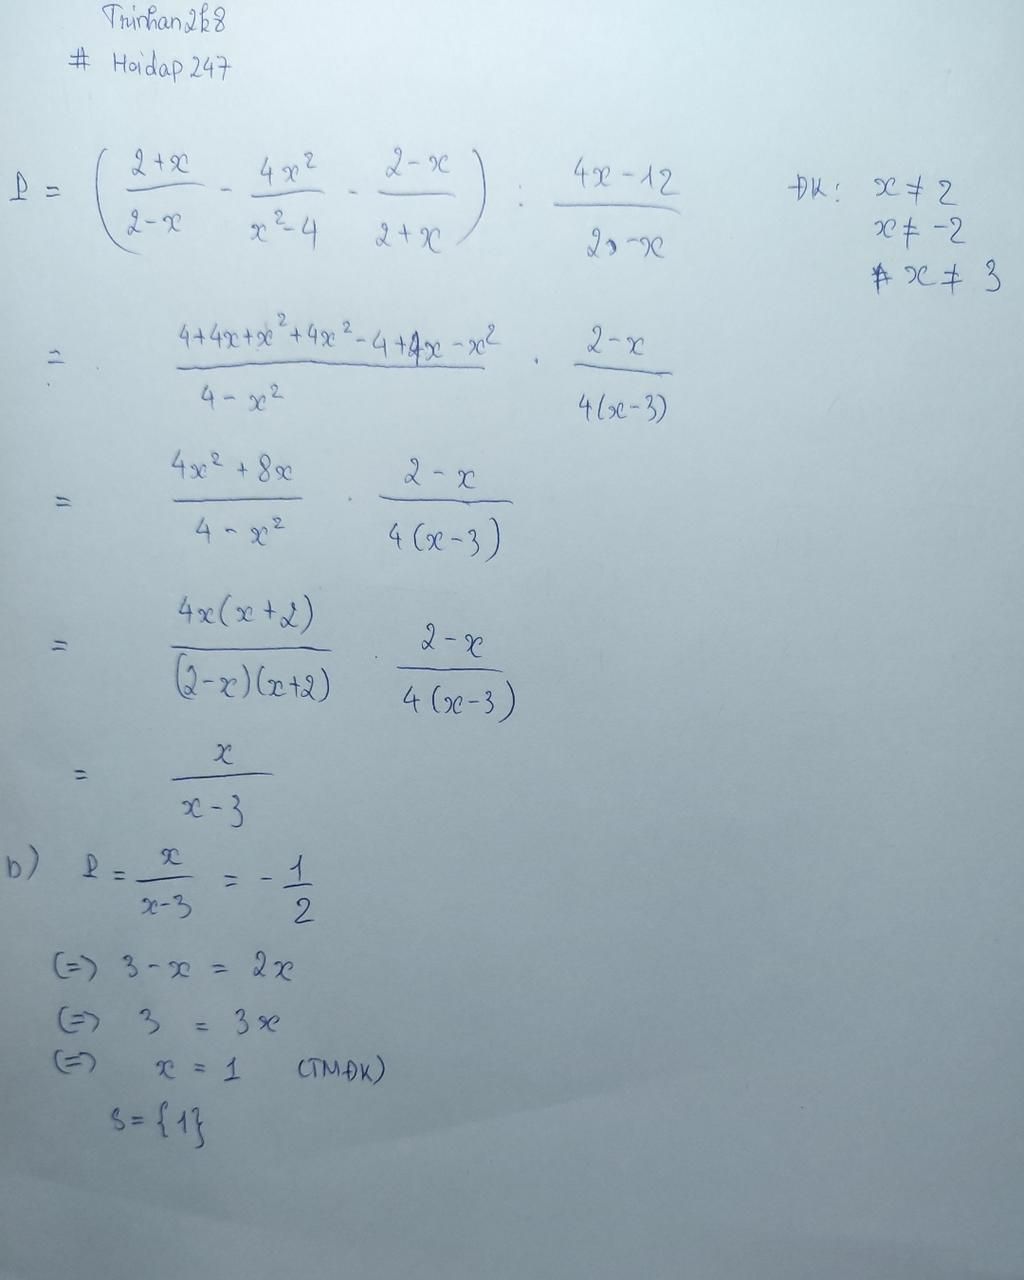 Trinhan2k8
# Hoidap247
P = ( (2+x)/(2-x) - (4x²)/(x²-4) - (2-x)/(2+x) ) : (4x-12)/(2-x) ĐK: x ≠ 2
x ≠ -2
x ≠ 3
= (4+4x+x²+4x²-4+4x-x²)/(4-x²) . (2-x)/(4(x-3))
= (4x²+8x)/(4-x²) . (2-x)/(4(x-3))
= (4x(x+2))/((2-x)(x+2)) . (2-x)/(4(x-3))
= x/(x-3)
b) P = x/(x-3) = -1/2
(=) 3-x = 2x
(=) 3 = 3x
(=) x = 1 (TMĐK)
S={1}